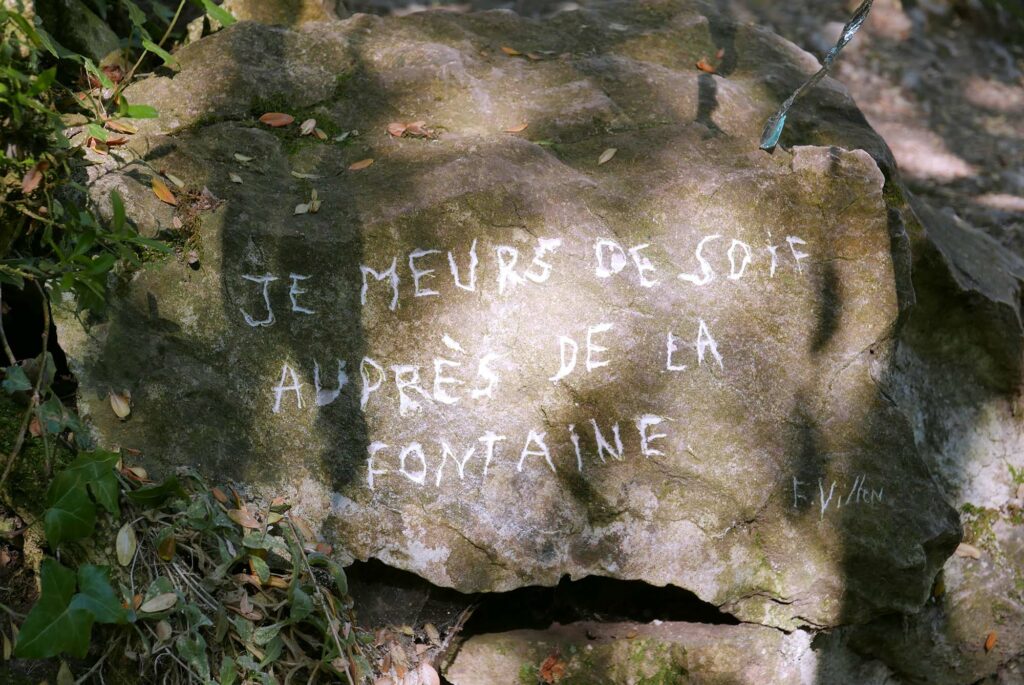 JE MEURS DE SOIF
AUPRÈS DE LA
FONTAINE
F. Villon